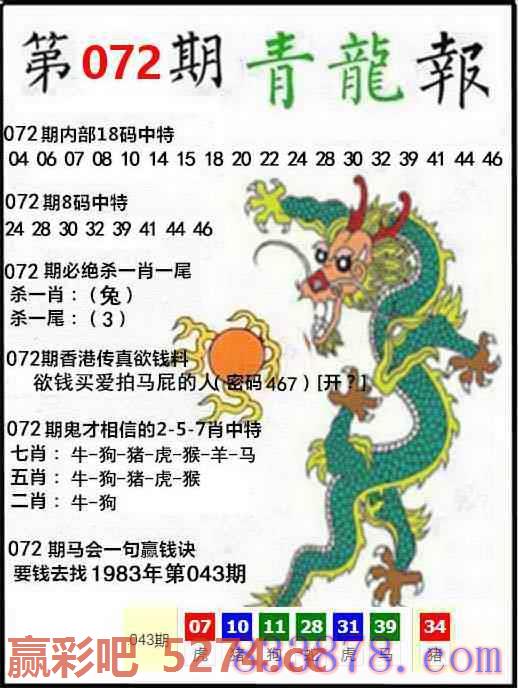 第072期青龍報
072期内部18码中特
04 06 07 08 10 14 15 18 20 22 24 28 30 32 39 41 44 46
072期8码中特
24 28 30 32 39 41 44 46
072期必绝杀一肖一尾
杀一肖：(兔)
杀一尾：(3)
072期香港传真欲钱料
欲钱买爱拍马屁的人(密码467)[开？]
072期鬼才相信的2-5-7肖中特
七肖：牛-狗-猪-虎-猴-羊-马
五肖：牛-狗-猪-虎-猴
二肖：牛-狗
072期马会一句赢钱诀
要钱去找1983年第043期
043期 07 10 11 28 31 39 34
虎 猪 狗 蛇 虎 马 猪
赢彩吧 5274.cc